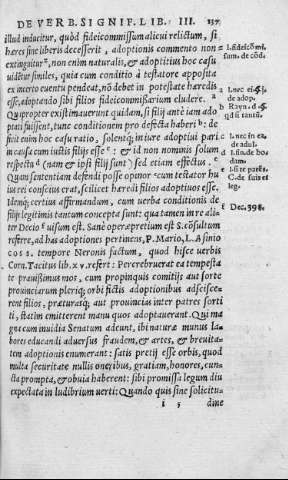 DE VERB. SIGNIF. LIB. III. 137
illud inducitur, quòd fideicommissum alicui relictum, si
hæres sine liberis decesserit, adoptionis commento non
extinguitur, non enim naturalis, & adoptitius hoc casu
uidētur similes, quia cum conditio à testatore apposita
ex incerto euentu pendeat, nō debet in potestate hæredis
esse, adoptando sibi filios fideicommissarium eludere.
Quapropter existimauerunt quidam, si filij ante iam ado
ptati fuissent, tunc conditionem pro defecta haberi: de
fuit enim hoc casu ratio, solentq; intuitu adoptiui pari
in causa cum iustis filijs esse: & id non nominis solum
respectu (nam & ipsi filij sunt) sed etiam effectus.
Quam sententiam defendi posse opinor cum testator hu
ius rei conscius erat, scilicet hæredi filios adoptiuos esse.
Idemq; certius affirmandum, cum uerba conditionis de
filijs legitimis tantum concepta sunt: qua tamen in re ali
ter Decio uisum est. Sanè operæpretium est S. cōsultum
referre, ad has adoptiones pertinens, P. Mario, L. Asinio
coss. tempore Neronis factum, quod hisce uerbis
Corn. Tacitus lib. xv. refert: Percrebruerat ea tempesta
te prauissimus mos, cum propinquis comitijs aut sorte
prouinciarum pleriq; orbi fictis adoptionibus adsisce-
rent filios, præturasq; aut prouincias inter patres sorti
ti, statim emitterent manu quos adoptauerant. Qui ma
gna cum inuidia Senatum adeunt, ius naturæ munus la
bores educandi aduersus fraudem, & artes, & breuita-
tem adoptionis enumerant: satis pretij esse orbis, quod
multa securitate nullis oneribus, gratiam, honores, cun-
cta prompta, & obuia haberent: sibi promissa legum diu
expectata in ludibrium uerti: Quando quis sine solicitu-
i 5 dine
l. fideicōmis
sum. de cōd.
a
de adop.
b
c
l. si ita
dam.
Dec. 398.